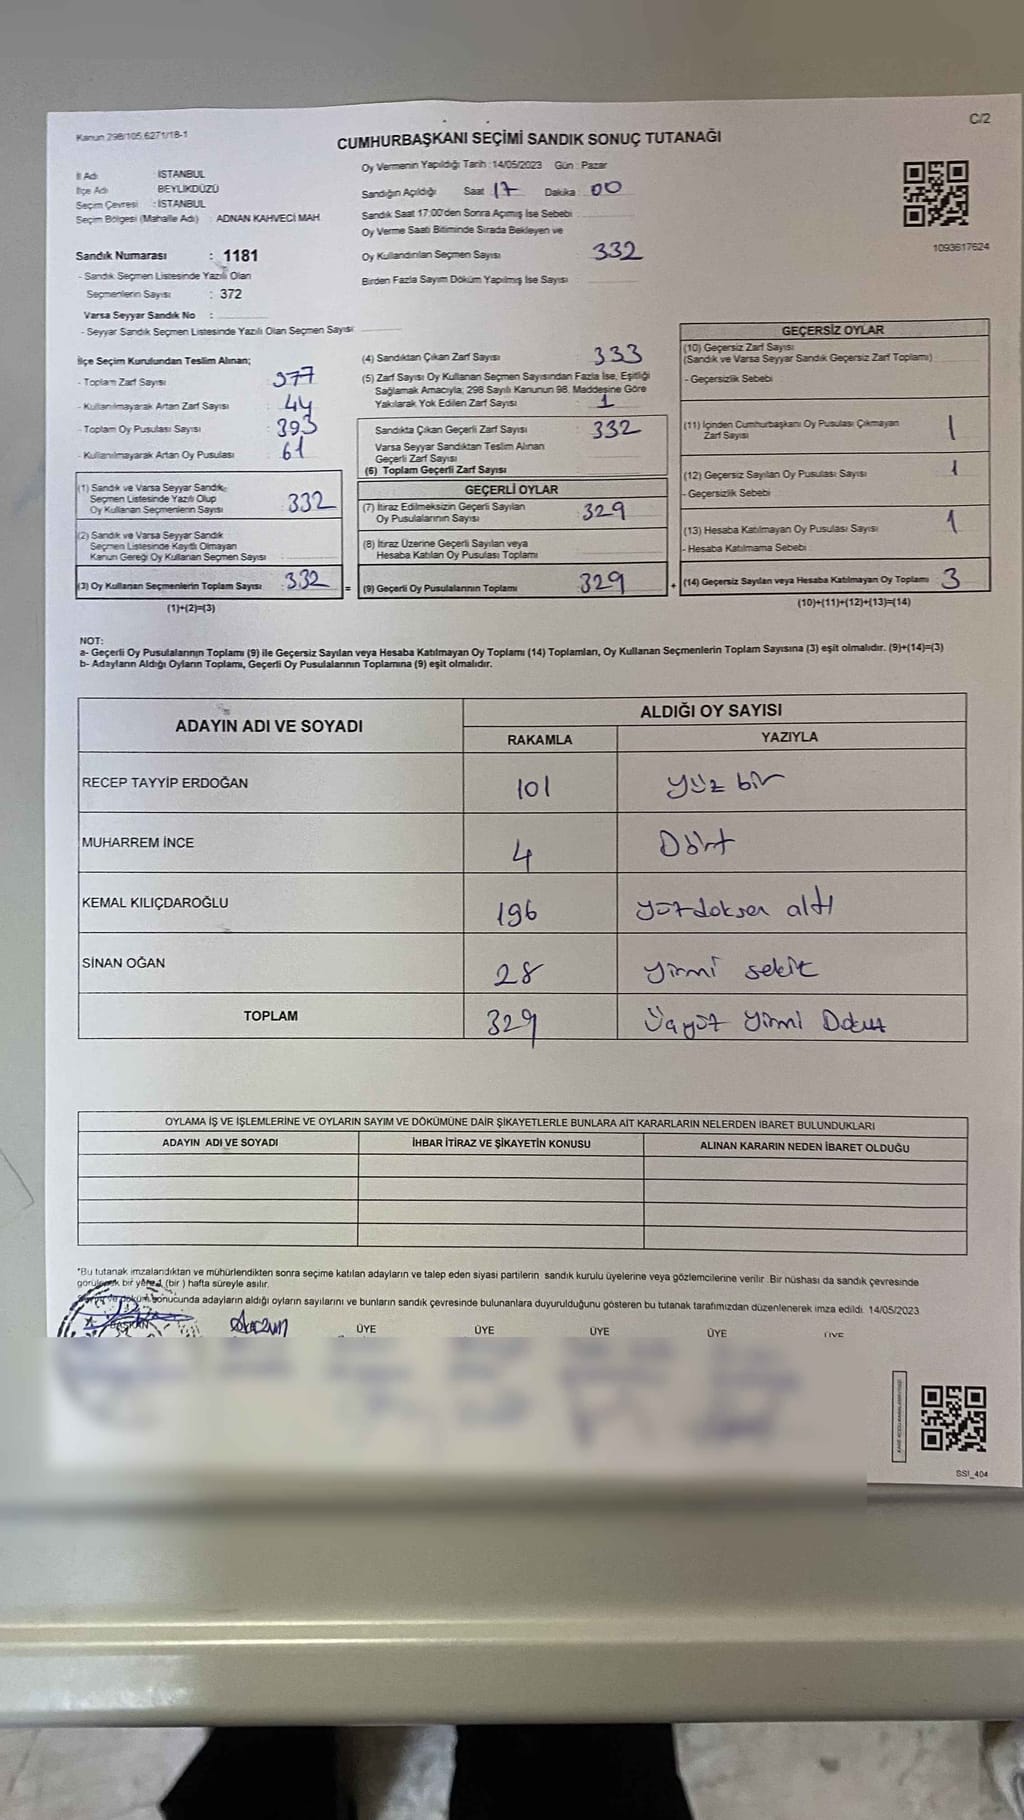 Kanun 298/105,6271/18-1
C/2
CUMHURBAŞKANI SEÇİMİ SANDIK SONUÇ TUTANAĞI
İl Adı : İSTANBUL
İlçe Adı : BEYLİKDÜZÜ
Seçim Çevresi : İSTANBUL
Seçim Bölgesi (Mahalle Adı) : ADNAN KAHVECİ MAH.
Sandık Numarası : 1181
- Sandık Seçmen Listesinde Yazılı Olan
Seçmenlerin Sayısı : 372
Varsa Seyyar Sandık No :
- Seyyar Sandık Seçmen Listesinde Yazılı Olan Seçmen Sayısı
Oy Vermenin Yapıldığı Tarih :14/05/2023 Gün : Pazar
Sandığın Açıldığı Saat 17 Dakika 00
Sandık Saat 17:00'den Sonra Açımış İse Sebebi :
Oy Verme Saati Bitiminde Sırada Bekleyen ve
Oy Kullandırılan Seçmen Sayısı 332
Birden Fazla Sayım Döküm Yapılmış İse Sayısı
1093617624
İlçe Seçim Kurulundan Teslim Alınan;
- Toplam Zarf Sayısı 377
- Kullanılmayarak Artan Zarf Sayısı 44
- Toplam Oy Pusulası Sayısı 393
- Kullanılmayarak Artan Oy Pusulası 61
(1) Sandık ve Varsa Seyyar Sandık
Seçmen Listesinde Yazılı Olup
Oy Kullanan Seçmenlerin Sayısı 332
(2) Sandık ve Varsa Seyyar Sandık
Seçmen Listesinde Kayıtlı Olmayan
Kanun Gereği Oy Kullanan Seçmen Sayısı
(3) Oy Kullanan Seçmenlerin Toplam Sayısı 332 =
(1)+(2)=(3)
(4) Sandıktan Çıkan Zarf Sayısı 333
(5) Zarf Sayısı Oy Kullanan Seçmen Sayısından Fazla İse, Eşitliği
Sağlamak Amacıyla; 298 Sayılı Kanunun 98. Maddesine Göre
Yakılarak Yok Edilen Zarf Sayısı : 1
Sandıkta Çıkan Geçerli Zarf Sayısı 332
Varsa Seyyar Sandıktan Teslim Alınan
Geçerli Zarf Sayısı
(6) Toplam Geçerli Zarf Sayısı
GEÇERLİ OYLAR
(7) İtiraz Edilmeksizin Geçerli Sayılan
Oy Pusulalarının Sayısı 329
(8) İtiraz Üzerine Geçerli Sayılan veya
Hesaba Katılan Oy Pusulası Toplamı
(9) Geçerli Oy Pusulalarının Toplamı 329 +
GEÇERSİZ OYLAR
(10) Geçersiz Zarf Sayısı
(Sandık ve Varsa Seyyar Sandık Geçersiz Zarf Toplamı)
- Geçersizlik Sebebi :
(11) İçinden Cumhurbaşkanı Oy Pusulası Çıkmayan
Zarf Sayısı 1
(12) Geçersiz Sayılan Oy Pusulası Sayısı 1
- Geçersizlik Sebebi
(13) Hesaba Katılmayan Oy Pusulası Sayısı 1
- Hesaba Katılmama Sebebi
(14) Geçersiz Sayılan veya Hesaba Katılmayan Oy Toplamı 3
(10)+(11)+(12)+(13)=(14)
NOT:
a- Geçerli Oy Pusulalarının Toplamı (9) ile Geçersiz Sayılan veya Hesaba Katılmayan Oy Toplamı (14) Toplamları, Oy Kullanan Seçmenlerin Toplam Sayısına (3) eşit olmalıdır. (9)+(14)=(3)
b- Adayların Aldığı Oyların Toplamı, Geçerli Oy Pusulalarının Toplamına (9) eşit olmalıdır.
ADAYIN ADI VE SOYADI
ALDIĞI OY SAYISI
RAKAMLA YAZIYLA
RECEP TAYYİP ERDOĞAN 101 yüz bir
MUHARREM İNCE 4 Dört
KEMAL KILIÇDAROĞLU 196 yüzdoksan altı
SİNAN OĞAN 28 yirmi sekiz
TOPLAM 329 Üçyüz yirmi Dokuz
OYLAMA İŞ VE İŞLEMLERİNE VE OYLARIN SAYIM VE DÖKÜMÜNE DAİR ŞİKAYETLERLE BUNLARA AİT KARARLARIN NELERDEN İBARET BULUNDUKLARI
ADAYIN ADI VE SOYADI İHBAR İTİRAZ VE ŞİKAYETİN KONUSU ALINAN KARARIN NEDEN İBARET OLDUĞU
*Bu tutanak imzalandıktan ve mühürlendikten sonra seçime katılan adayların ve talep eden siyasi partilerin sandık kurulu üyelerine veya gözlemcilerine verilir. Bir nüshası da sandık çevresinde
görülecek bir yere 1 (bir ) hafta süreyle asılır.
sonucunda adayların aldığı oyların sayılarını ve bunların sandık çevresinde bulunanlara duyurulduğunu gösteren bu tutanak tarafımızdan düzenlenerek imza edildi. 14/05/2023
BAŞKAN ÜYE ÜYE ÜYE ÜYE ÜYE
SSI_404